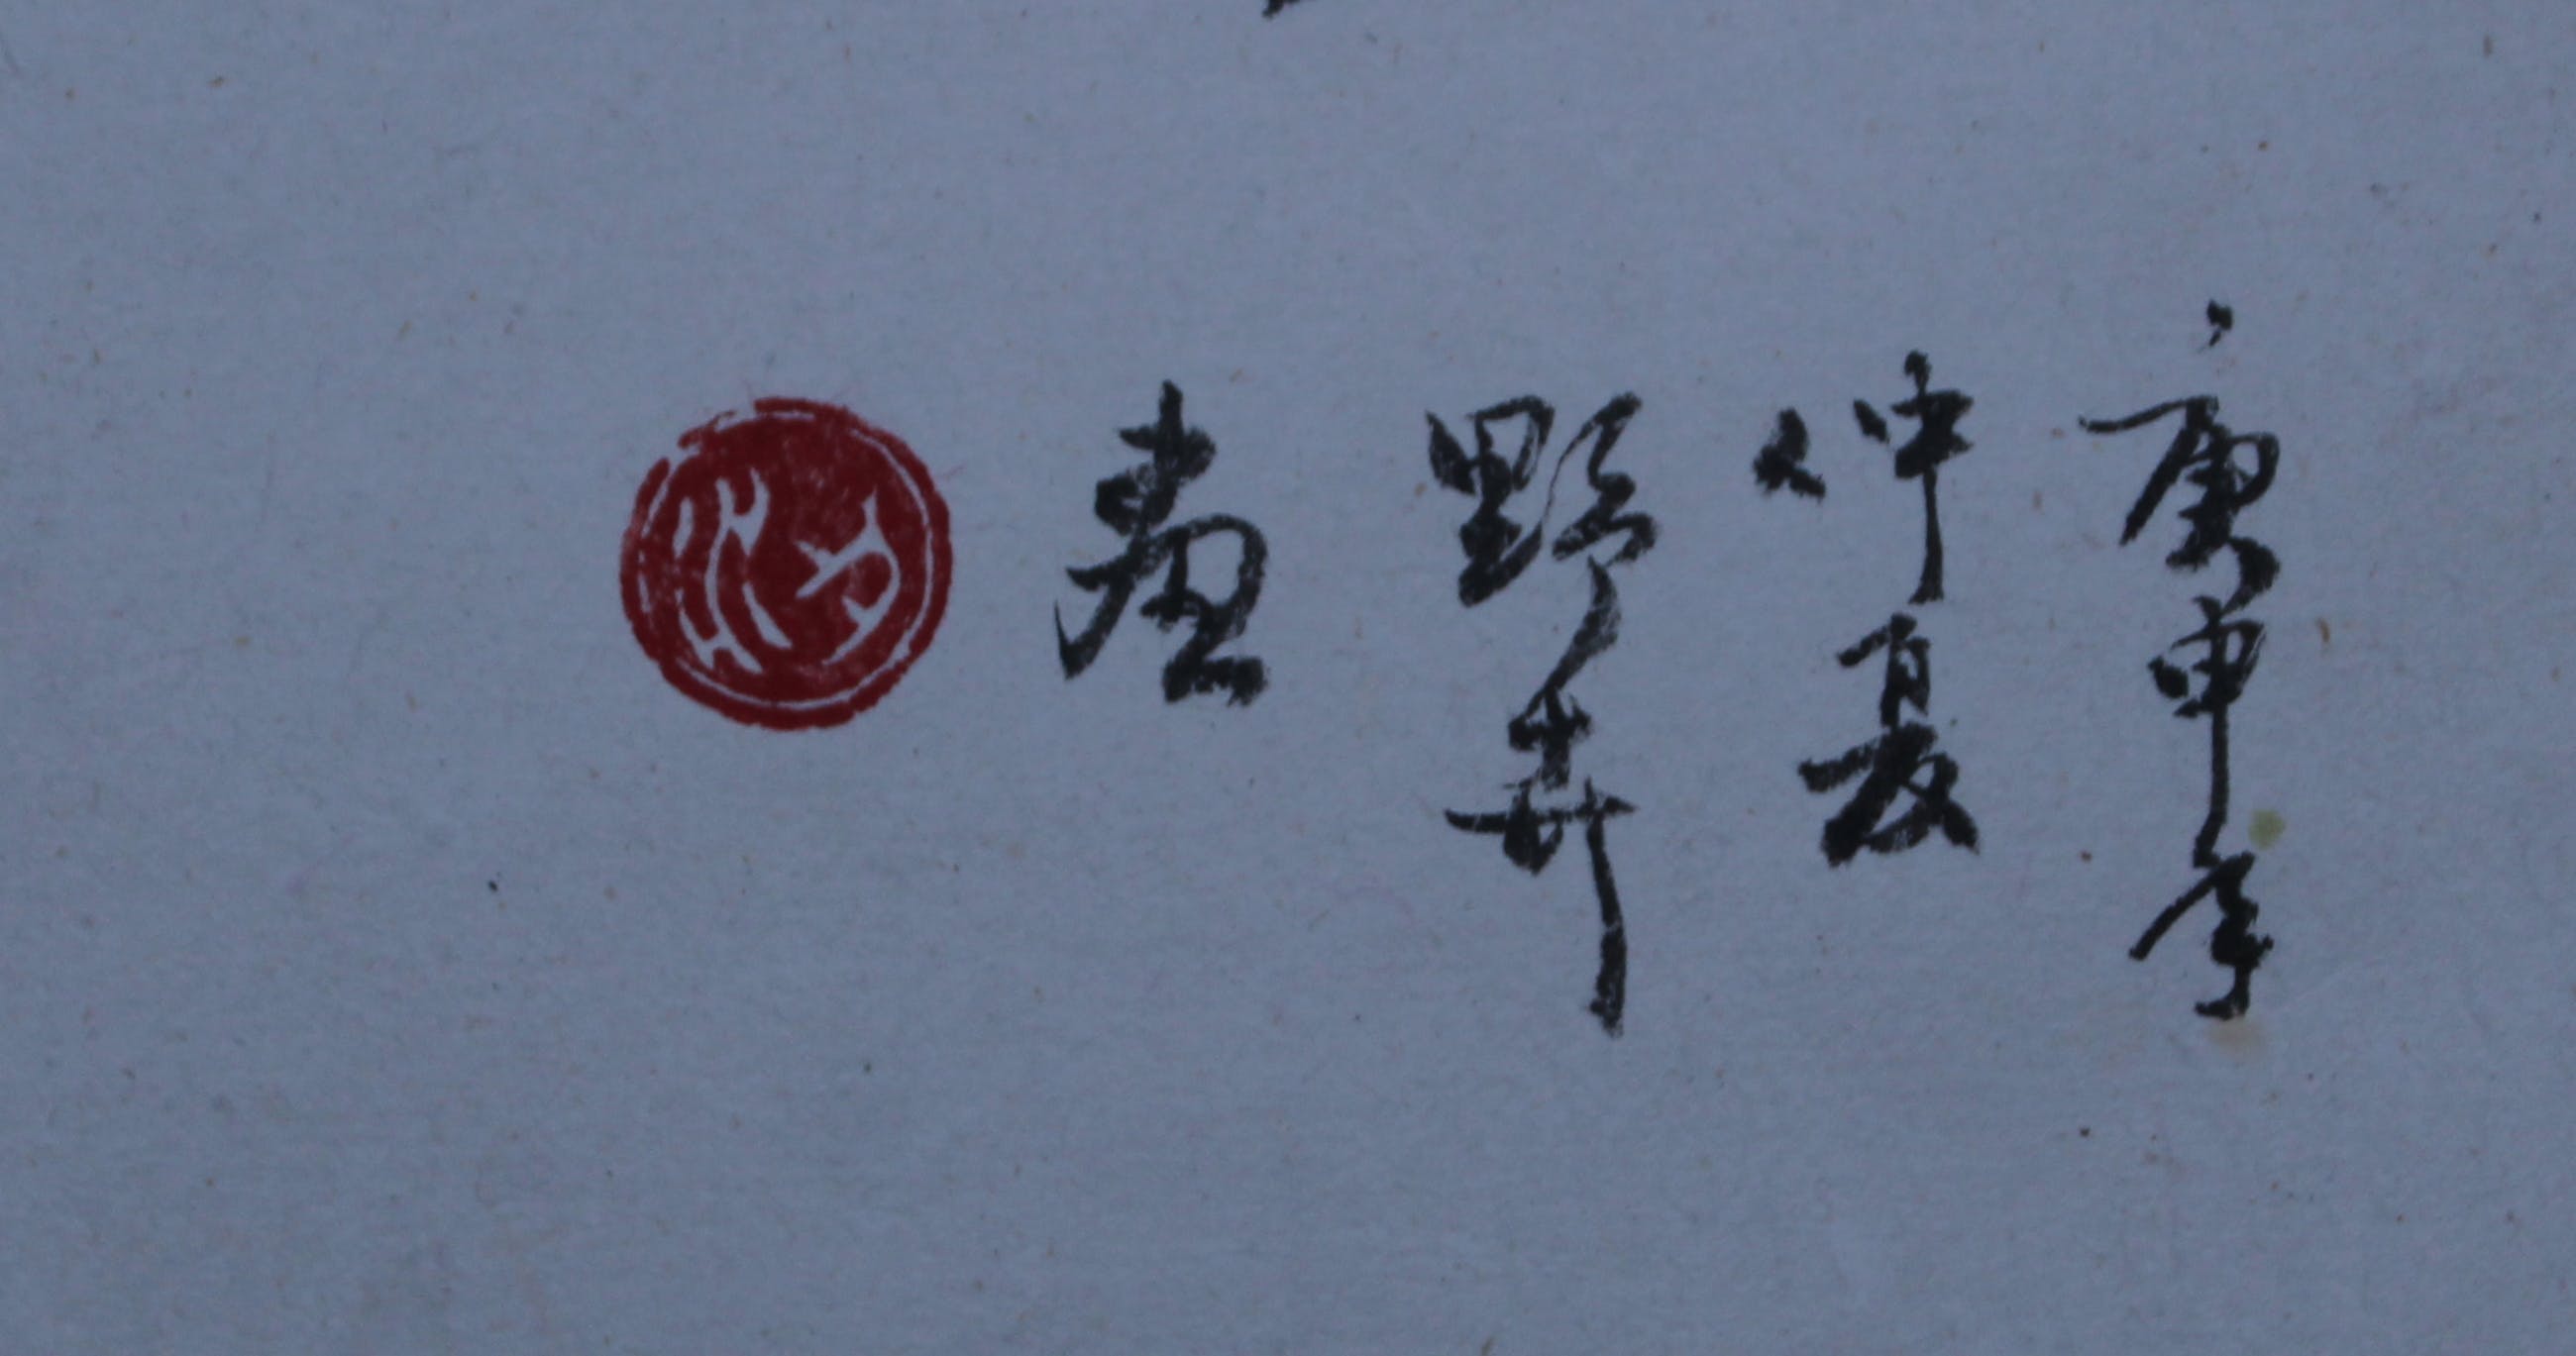 庚申年
仲夏
野卉
画